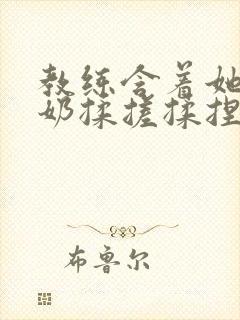 教练含着她
奶揉搓揉捏
布鲁尔